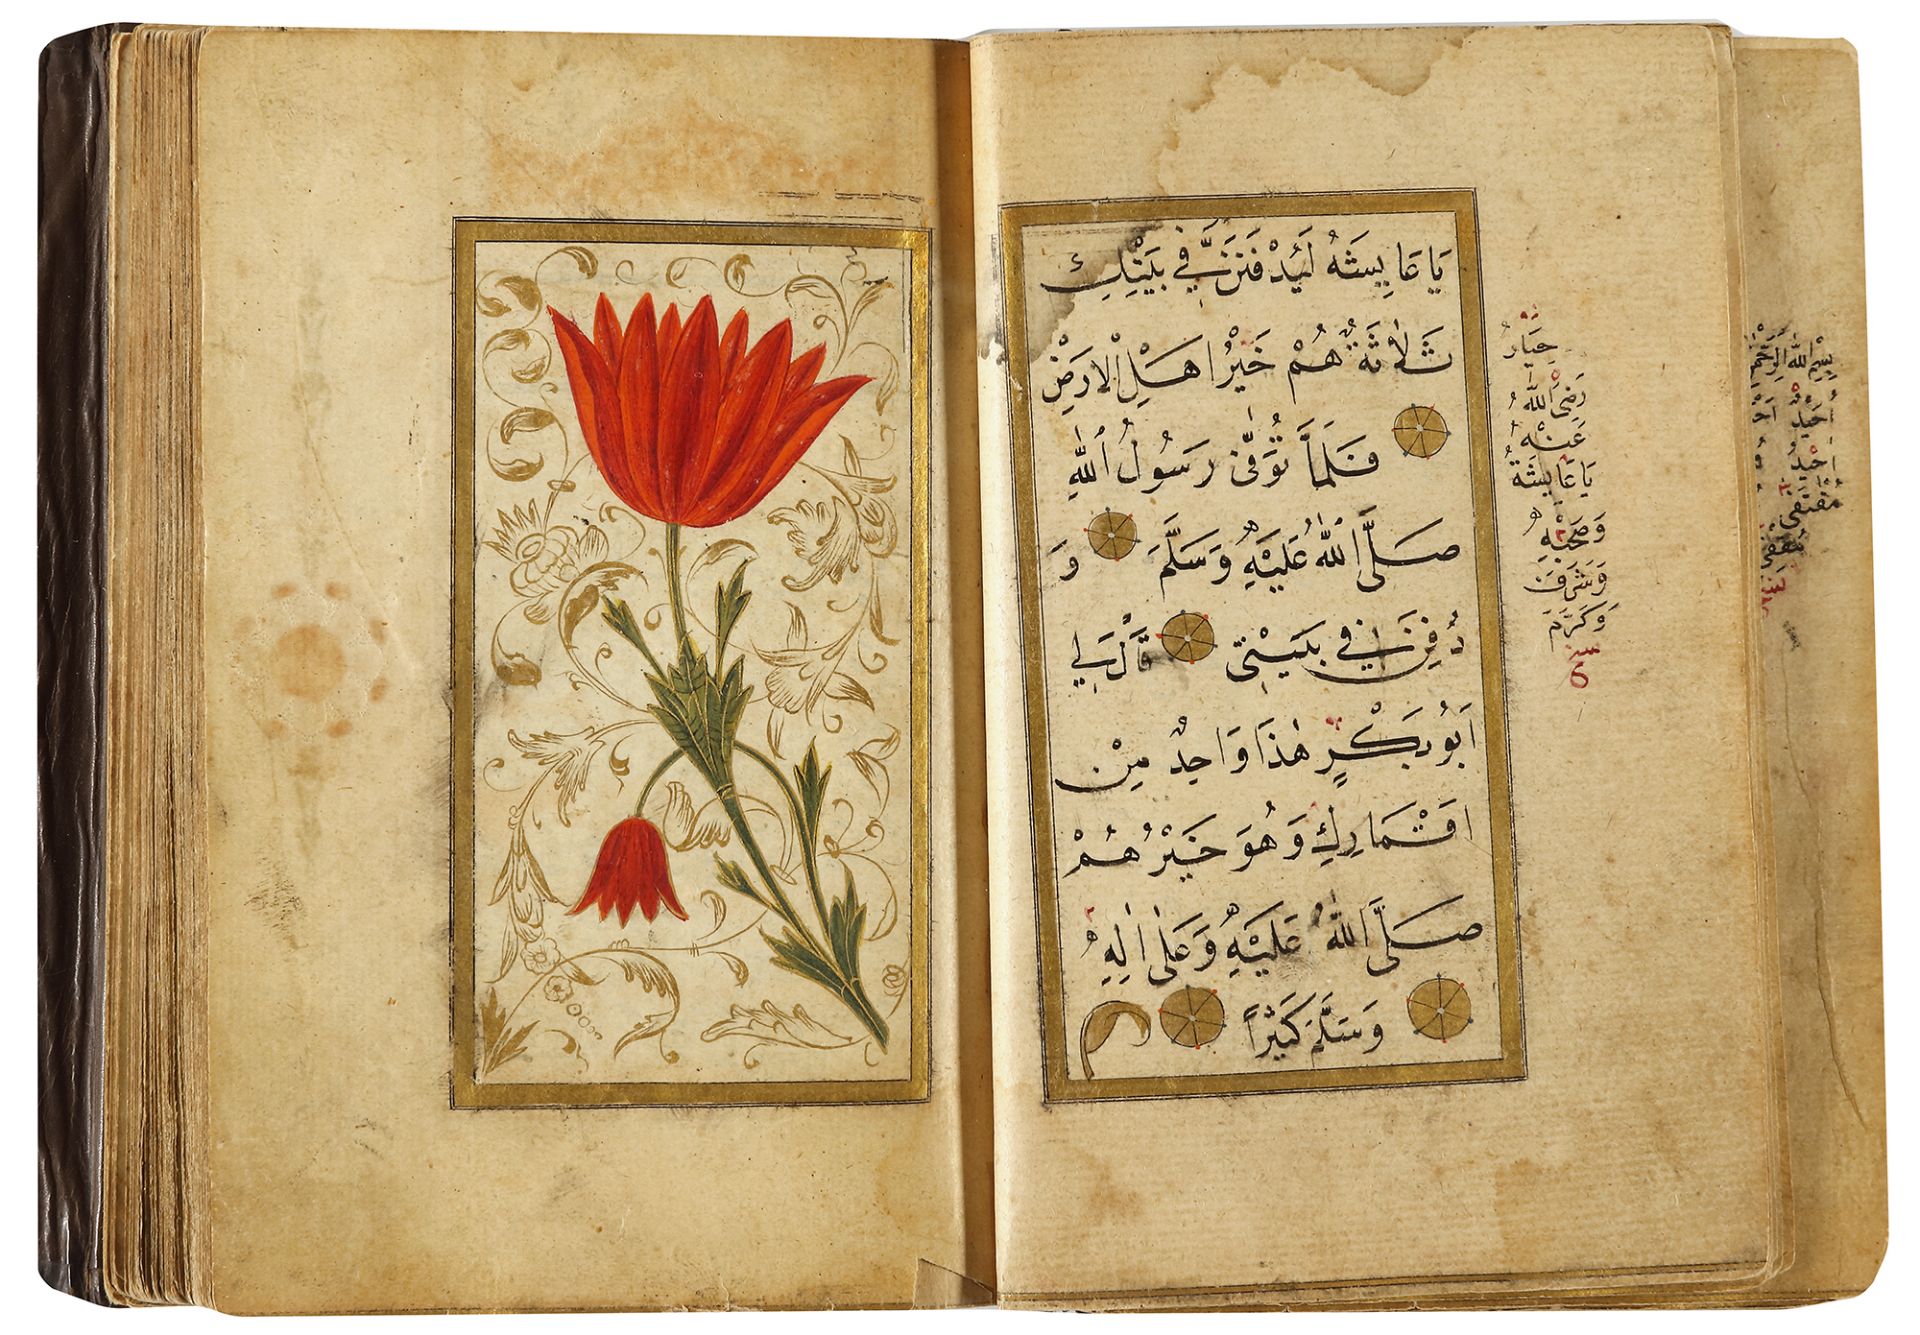 يَا عَايِشَةُ لَيُدْفَنَنَّ فِي بَيْتِكِ
ثَلَاثَةٌ هُمْ خَيْرُ اَهْلِ الْاَرْضِ
فَلَمَّا تُوُفِّىَ رَسُولُ اللّٰهِ
صَلَّى اللّٰهُ عَلَيْهِ وَسَلَّمَ وَ
دُفِنَ فِي بَيْتِى قَالَ لِي
اَبُو بَكْرٍ هٰذَا وَاحِدٌ مِنْ
اَقْمَارِكِ وَهُوَ خَيْرُهُمْ
صَلَّى اللّٰهُ عَلَيْهِ وَعَلٰى اٰلِهِ
وَسَلَّمَ كَثِيْرًا
رَضِىَ اللّٰهُ
عَنْهُ
يَا عَايِشَةُ
وَصَحْبِهِ
وَشَرَّفَ
وَكَرَّمَ
بِسْمِ اللّٰهِ الرَّحْمٰنِ
اُحِيْدٌ
مُقْتَفِى